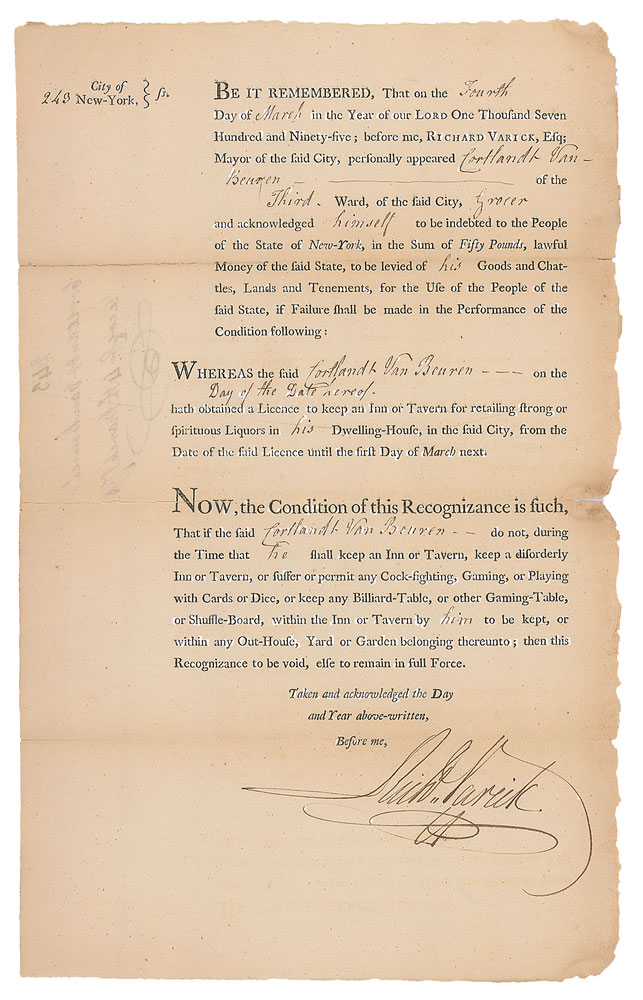 243 City of
New-York, } ſs.
BE IT REMEMBERED, That on the Fourth
Day of March in the Year of our LORD One Thouſand Seven
Hundred and Ninety-five; before me, RICHARD VARICK, Eſq;
Mayor of the ſaid City, perſonally appeared Cortlandt Van
Beuren — of the
Third. Ward, of the ſaid City, Grocer
and acknowledged himself to be indebted to the People
of the State of New-York, in the Sum of Fifty Pounds, lawful
Money of the ſaid State, to be levied of his Goods and Chat-
tles, Lands and Tenements, for the Uſe of the People of the
ſaid State, if Failure ſhall be made in the Performance of the
Condition following:
WHEREAS the ſaid Cortlandt Van Beuren — — — on the
Day of the Date hereof.
hath obtained a Licence to keep an Inn or Tavern for retailing ſtrong or
ſpirituous Liquors in his Dwelling-Houſe, in the ſaid City, from the
Date of the ſaid Licence until the firſt Day of March next.
NOW, the Condition of this Recognizance is ſuch,
That if the ſaid Cortlandt Van Beuren — — do not, during
the Time that he ſhall keep an Inn or Tavern, keep a diſorderly
Inn or Tavern, or ſuffer or permit any Cock-fighting, Gaming, or Playing
with Cards or Dice, or keep any Billiard-Table, or other Gaming-Table,
or Shuffle-Board, within the Inn or Tavern by him to be kept, or
within any Out-Houſe, Yard or Garden belonging thereunto; then this
Recognizance to be void, elſe to remain in full Force.
Taken and acknowledged the Day
and Year above-written,
Before me,
Richd. Varick.
245